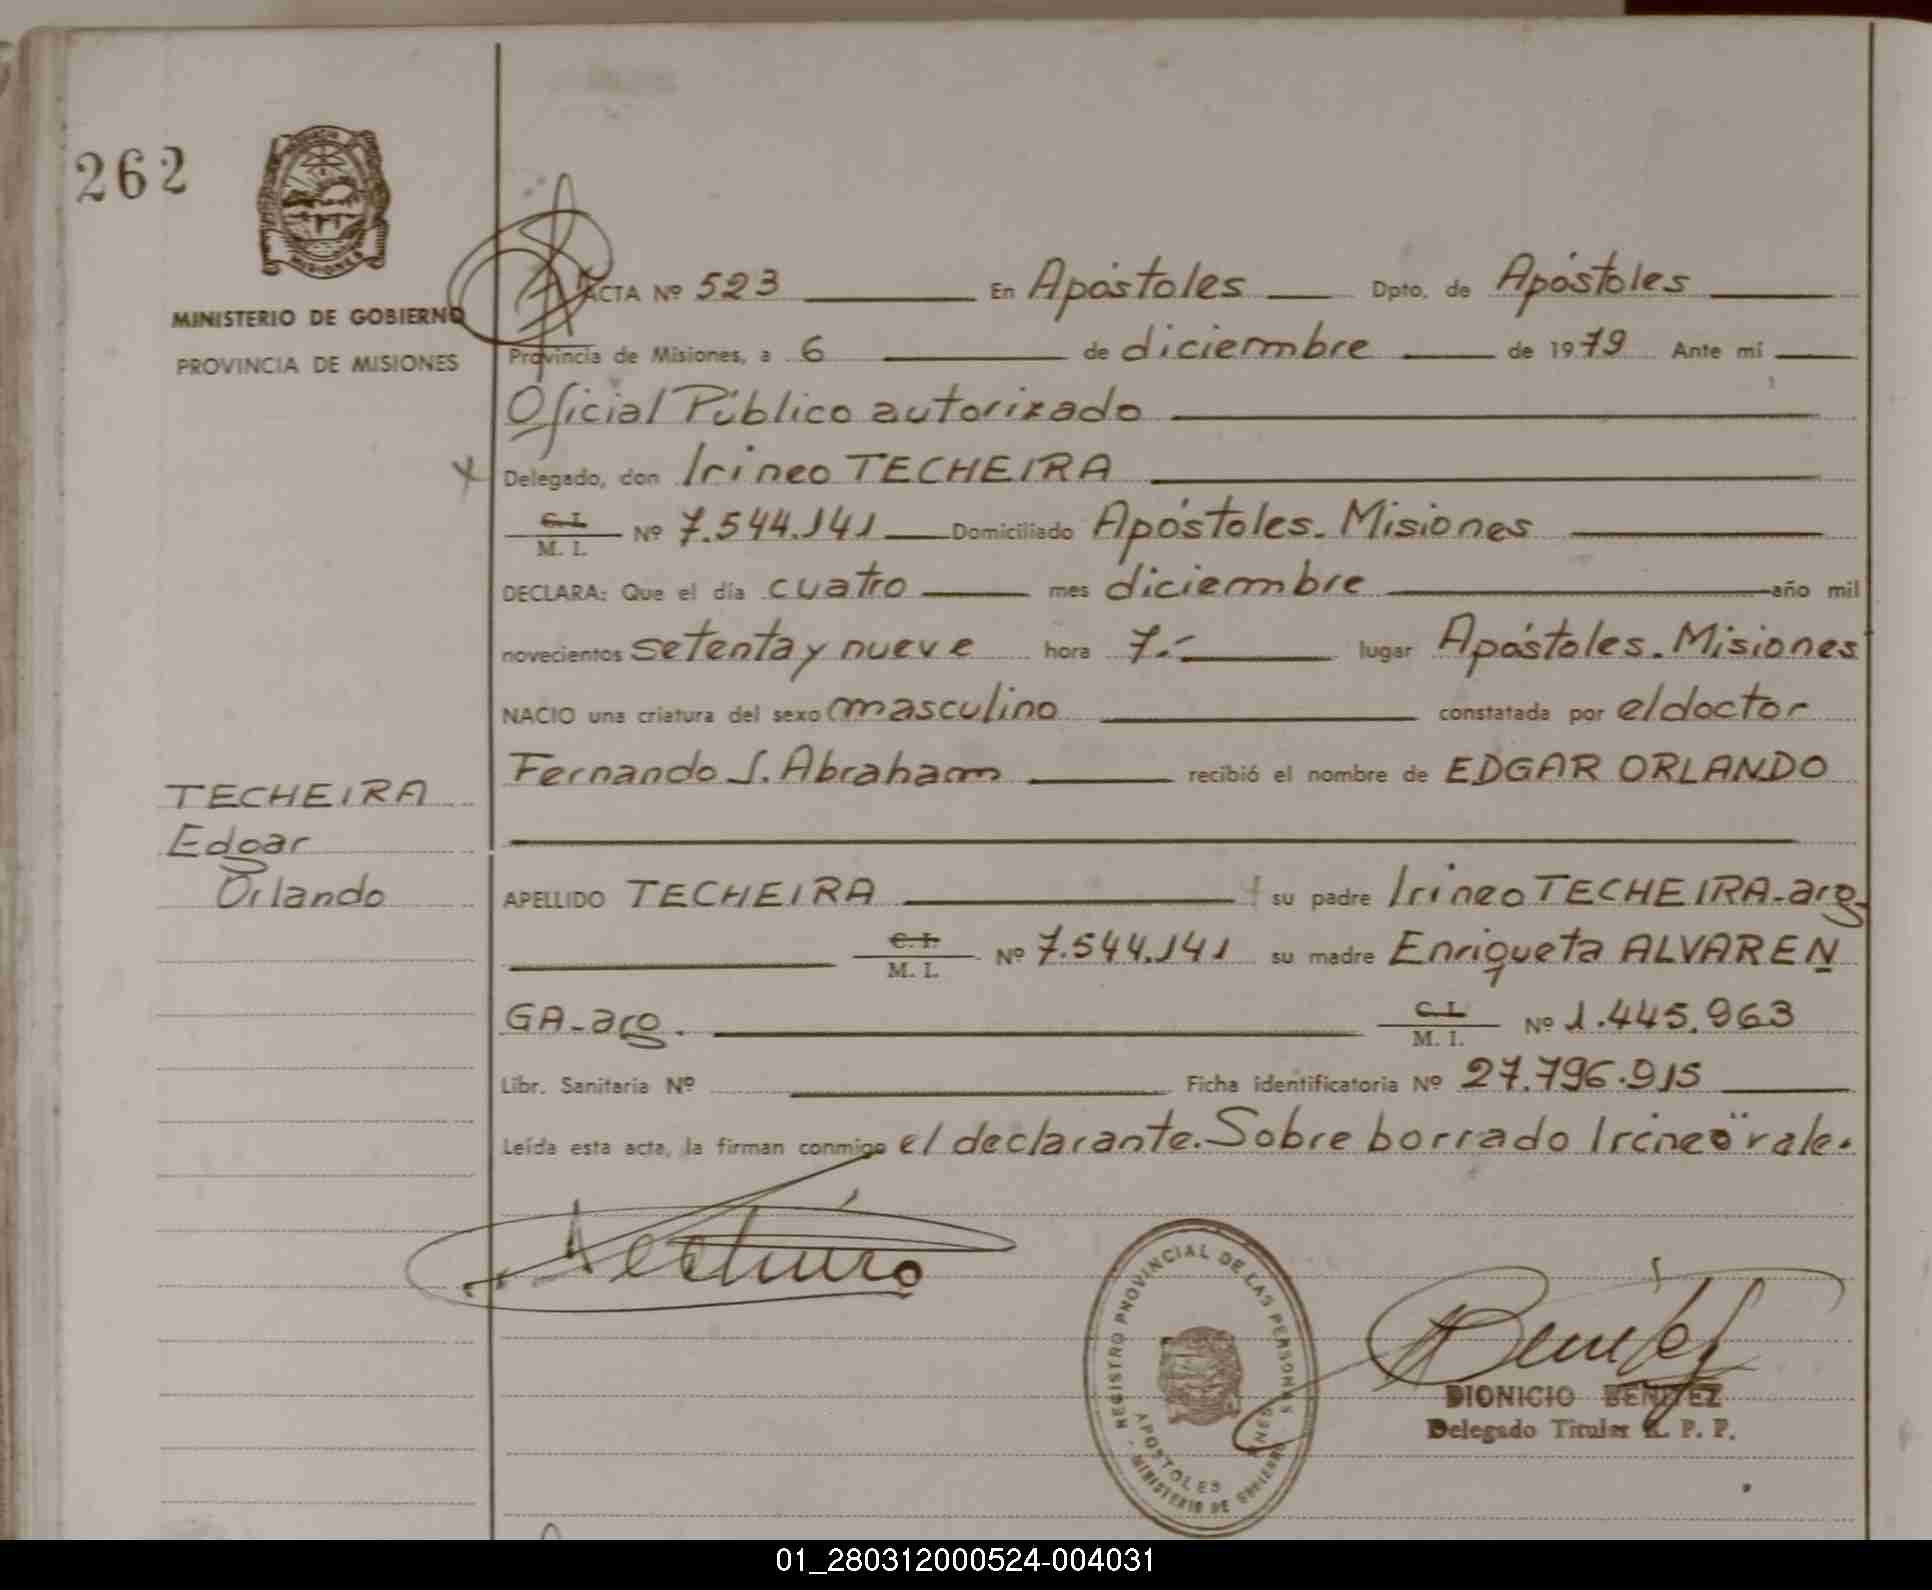 262
MISIONES
MINISTERIO DE GOBIERNO
PROVINCIA DE MISIONES
ACTA Nº 523 En Apóstoles Dpto. de Apóstoles
Provincia de Misiones, a 6 de diciembre de 1979 Ante mí
Oficial Público autorizado
Delegado, don Irineo TECHEIRA
C. I.
M. I. Nº 7.544.141 Domiciliado Apóstoles. Misiones
DECLARA: Que el día cuatro mes diciembre año mil
novecientos setenta y nueve hora 7.- lugar Apóstoles. Misiones
NACIO una criatura del sexo masculino constatada por el doctor
Fernando J. Abraham recibió el nombre de EDGAR ORLANDO
TECHEIRA
Edgar
Orlando
APELLIDO TECHEIRA su padre Irineo TECHEIRA-arg-
C. I.
M. I. Nº 7.544.141 su madre Enriqueta ALVAREN
GA-arg. C. I.
M. I. Nº 1.445.963
Libr. Sanitaria Nº Ficha identificatoria Nº 27.796.915
Leída esta acta, la firman conmigo el declarante. Sobre borrado Irineo" vale.
REGISTRO PROVINCIAL DE LAS PERSONAS
APOSTOLES
MINISTERIO DE GOBIERNO
Benítez
DIONICIO BENITEZ
Delegado Titular R. P. P.
01_280312000524-004031